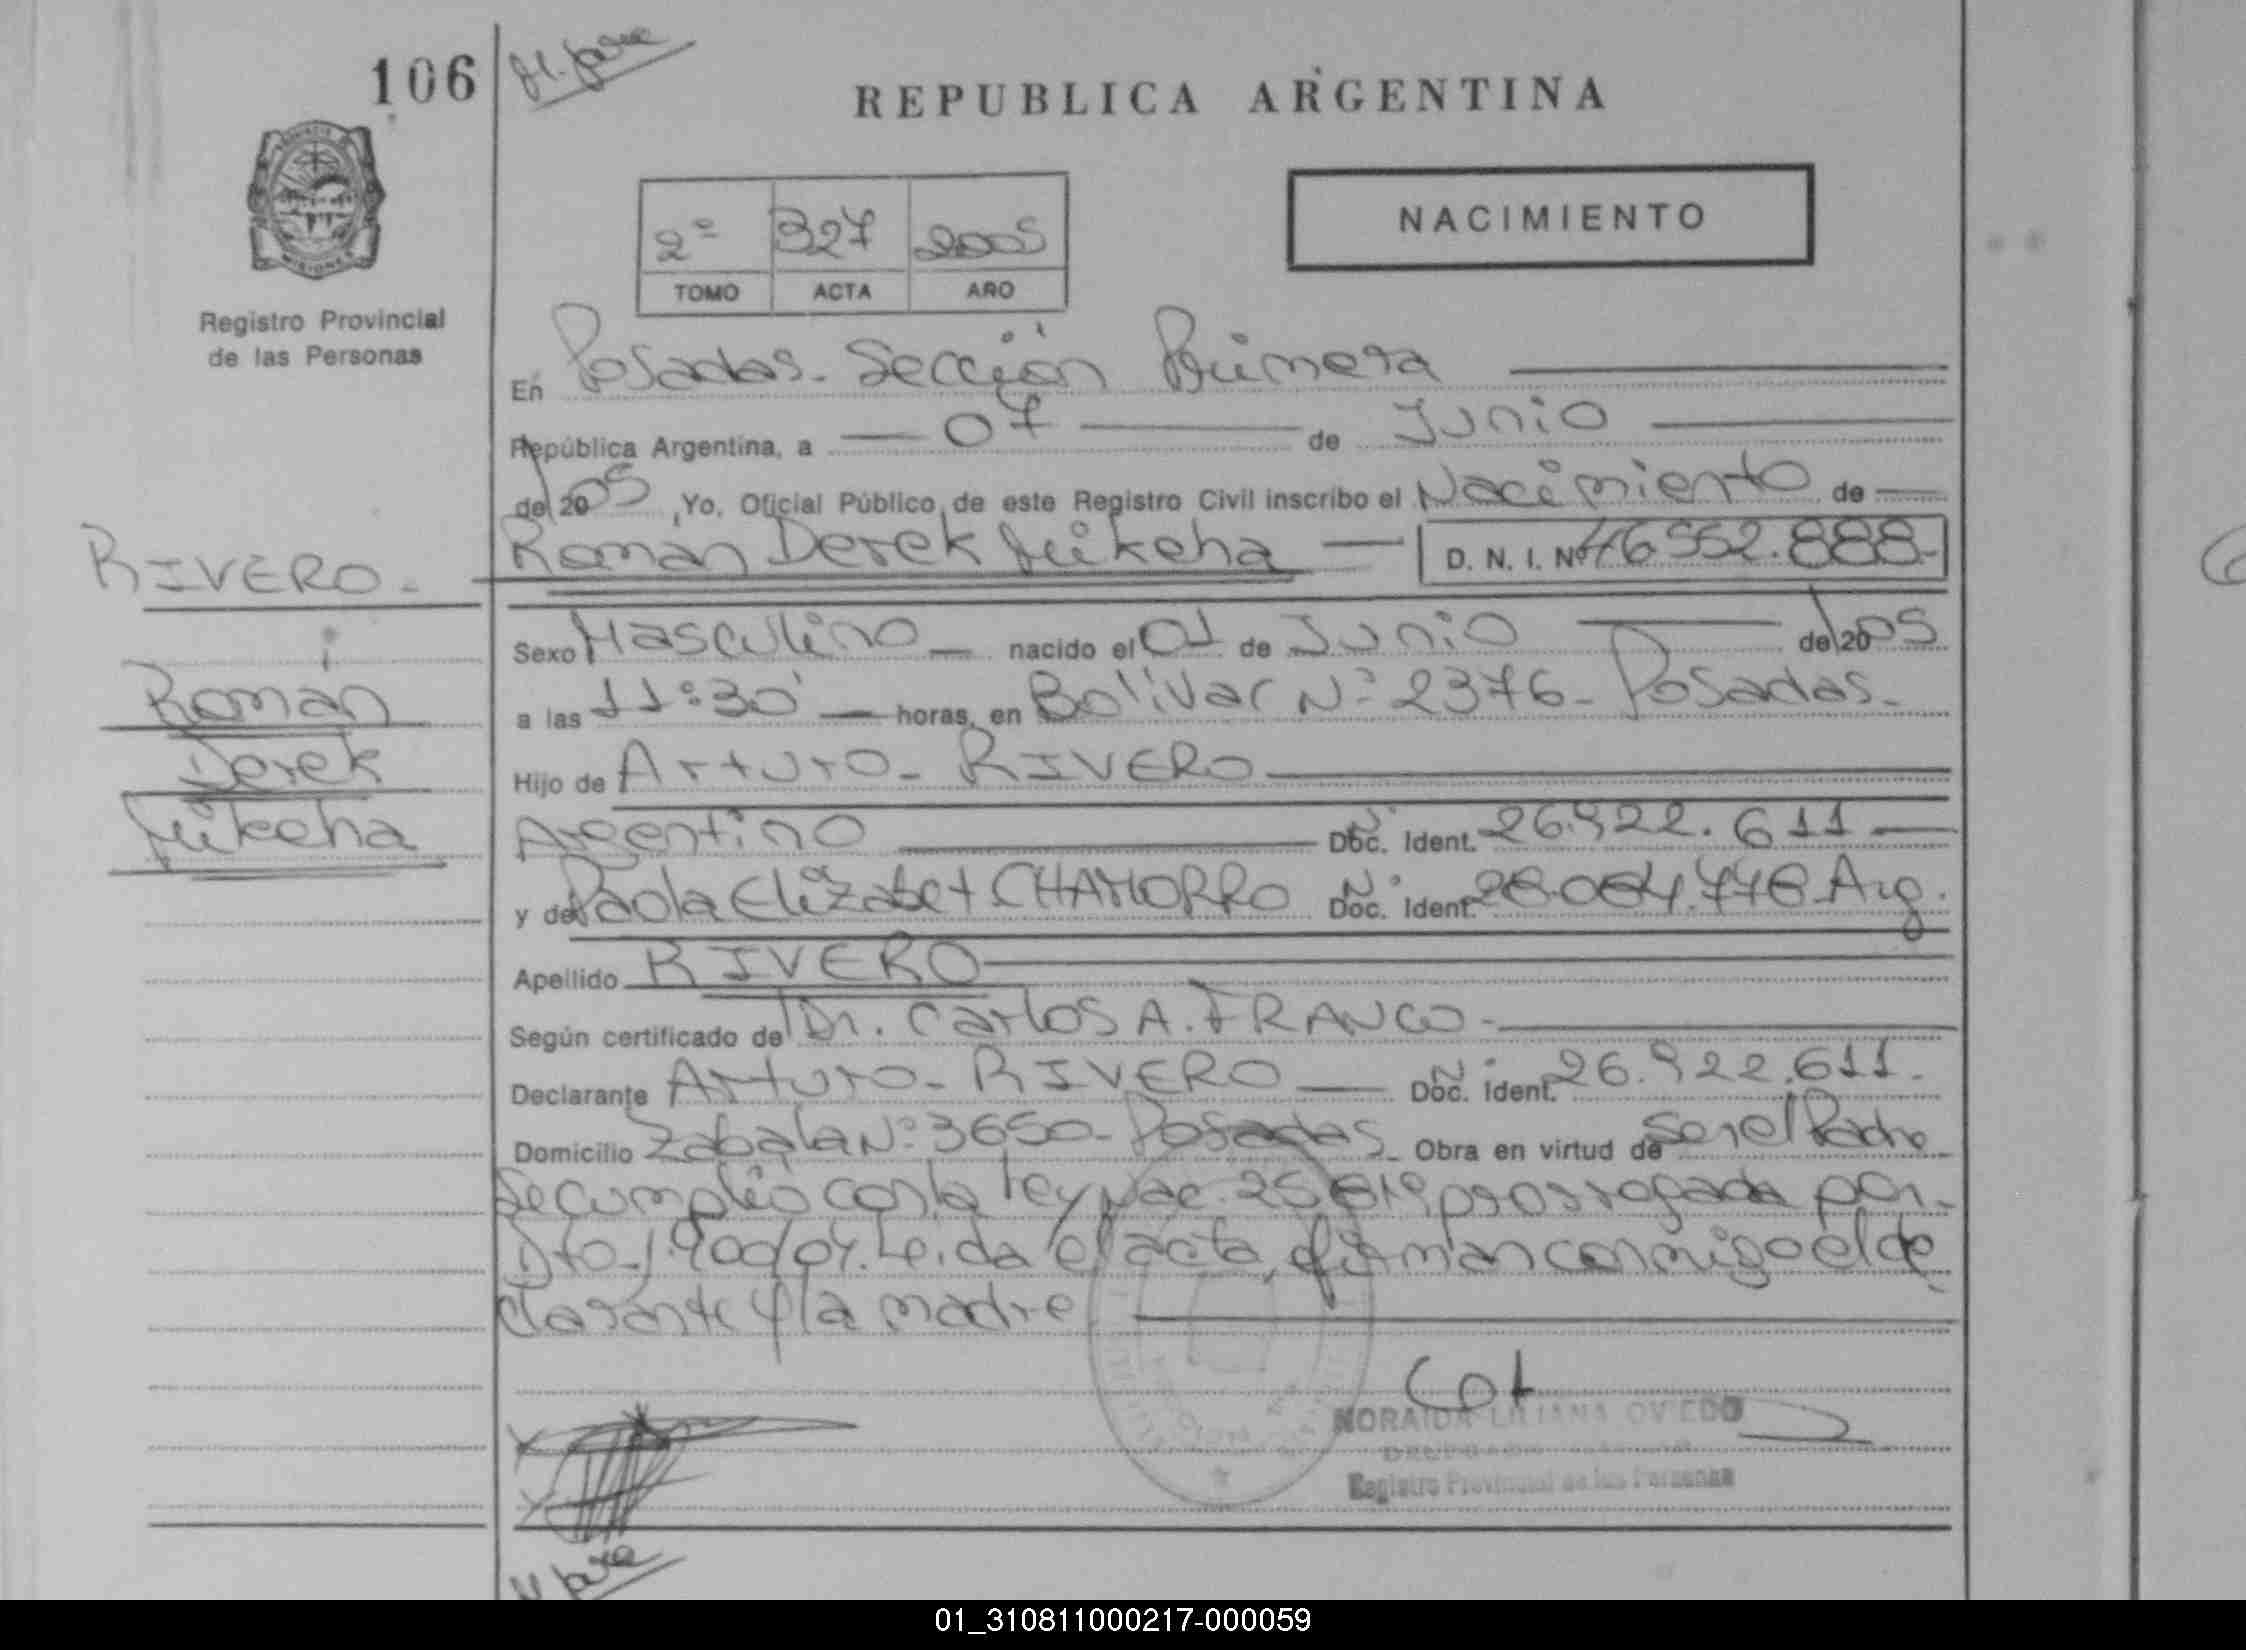 106
REPUBLICA ARGENTINA
NACIMIENTO
2º 327 2005
TOMO ACTA AÑO
MISIONES
Registro Provincial
de las Personas
En Posadas. Sección Primera
República Argentina, a 07 de Junio
de 2005, Yo, Oficial Público, de este Registro Civil inscribo el Nacimiento de
Roman Derek D. N. I. Nº 46552.888.
RIVERO.
Román
Derek
Sexo Masculino nacido el 01 de Junio de 2005
a las 11:30' horas, en Bolivar Nº 2376 - Posadas.
Hijo de Arturo - RIVERO
Argentino Nº Doc. Ident. 26.922.611
y de Paola Elizabet CHAMORRO Nº Doc. Ident. Arg.
Apellido RIVERO
Según certificado de Dr. Carlos A. FRANCO -
Declarante Arturo - RIVERO Nº Doc. Ident. 26.922.611.
Domicilio Zabala Nº 3650 - Posadas. Obra en virtud de ser el Padre
Se cumplió con la ley Nac. 25819 prorrogada por
Dto. 1.900/04. Leida el acta, firman conmigo el de
clarante y la madre
NORAIDA LILIANA OVIEDO
Registro Provincial de las Personas
01_310811000217-000059